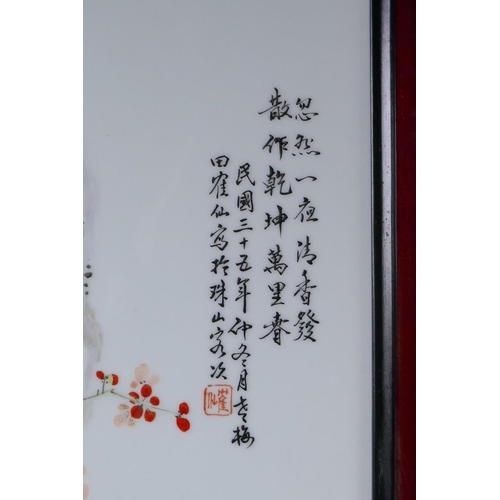 忽然一夜清香發
散作乾坤萬里春
民國三十五年仲冬月老梅
田崔仙寫於珠山客次
崔仙